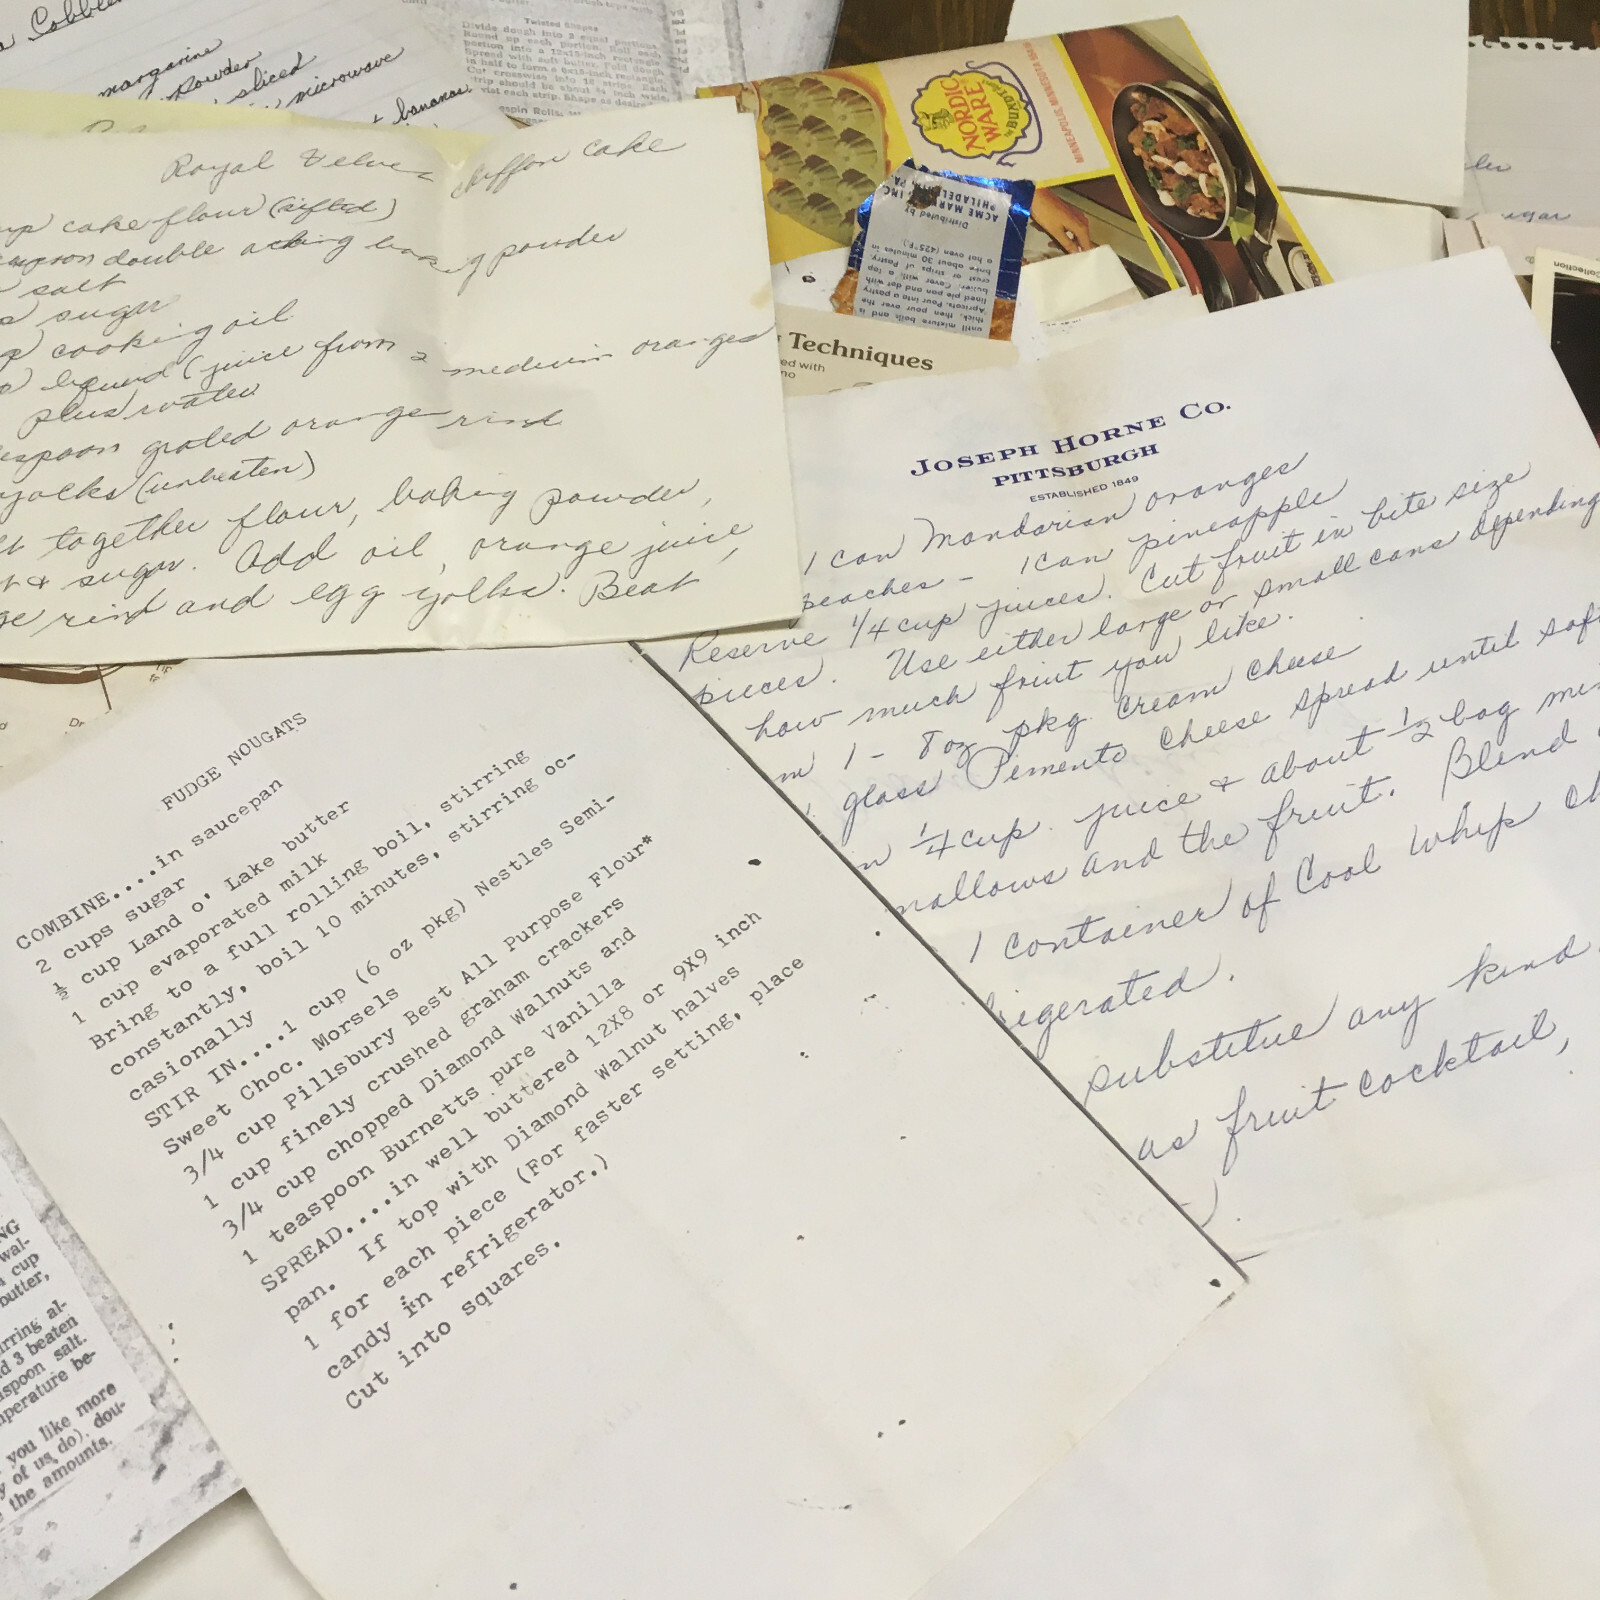 Cobbler
margarine
powder
sliced
microwave
bananas
Twisted Shapes
Divide dough into 2 equal portions.
Royal Velvet chiffon cake
cake flour (sifted)
double acting baking powder
salt
sugar
cooking oil
liquid (juice from 2 medium oranges
plus water
grated orange rind
yolks (unbeaten)
together flour, baking powder,
& sugar. Add oil, orange juice,
rind and egg yolks. Beat
NORDIC
WARE
BUNDT
MINNEAPOLIS, MINNESOTA
until mixture boils and is
thick, then pour over the
Apricots. Pour into a pastry
lined pie pan and dot with
butter. Cover with a top
crust or strips of Pastry,
bake about 30 minutes in
a hot oven (425°F.)
Distributed by
ACME MARKETS, INC.
PHILADELPHIA, PA.
Techniques
ed with
no
Collection
JOSEPH HORNE CO.
PITTSBURGH
ESTABLISHED 1849
1 can Mandarian oranges
peaches - 1 can pineapple
Reserve 1/4 cup juices. Cut fruit in bite size
pieces. Use either large or small cans depending
how much fruit you like.
1 - 8 oz pkg cream cheese
glass Pimento cheese spread until soft
1/4 cup juice & about 1/2 bag
mallows and the fruit. Blend
1 container of Cool Whip
igerated.
substitue any kind
as fruit cocktail,
FUDGE NOUGATS
COMBINE....in saucepan
2 cups sugar
½ cup Land o' Lake butter
1 cup evaporated milk
Bring to a full rolling boil, stirring
constantly, boil 10 minutes, stirring oc-
casionally
STIR IN....1 cup (6 oz pkg) Nestles Semi-
Sweet Choc. Morsels
3/4 cup Pillsbury Best All Purpose Flour*
1 cup finely crushed graham crackers
3/4 cup chopped Diamond Walnuts and
1 teaspoon Burnetts pure Vanilla
SPREAD....in well buttered 12X8 or 9X9 inch
pan. If top with Diamond Walnut halves
1 for each piece (For faster setting, place
candy in refrigerator.)
Cut into squares.
NG
wal-
cup
butter,
rring al-
d 3 beaten
spoon salt.
mperature be-
you like more
y of us do). dou-
the amounts.